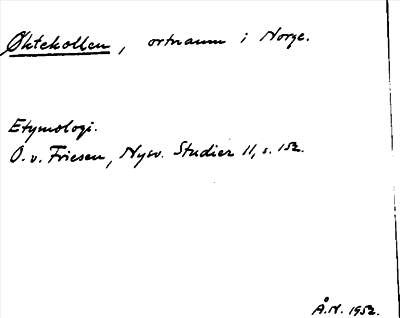 Øktekollen, ortnamn i Norge.
Etymologi.
O. v. Friesen, Nysv. Studier 11, s. 152.
Å.N. 1952.